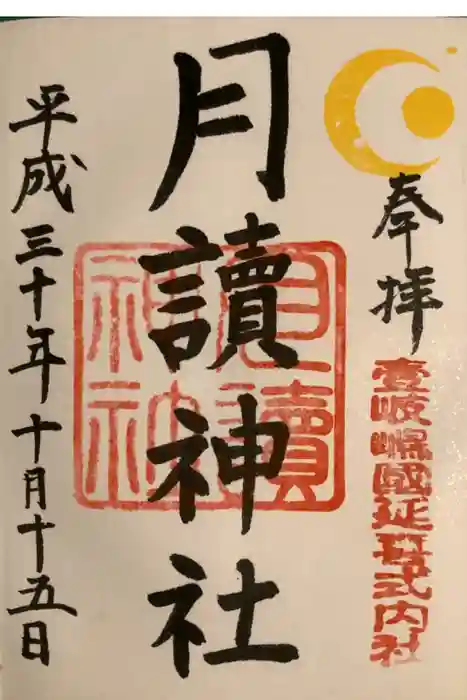 奉拝
壹岐嶋國延喜式内社
月讀神社
月讀
神社
平成三十年十月十五日